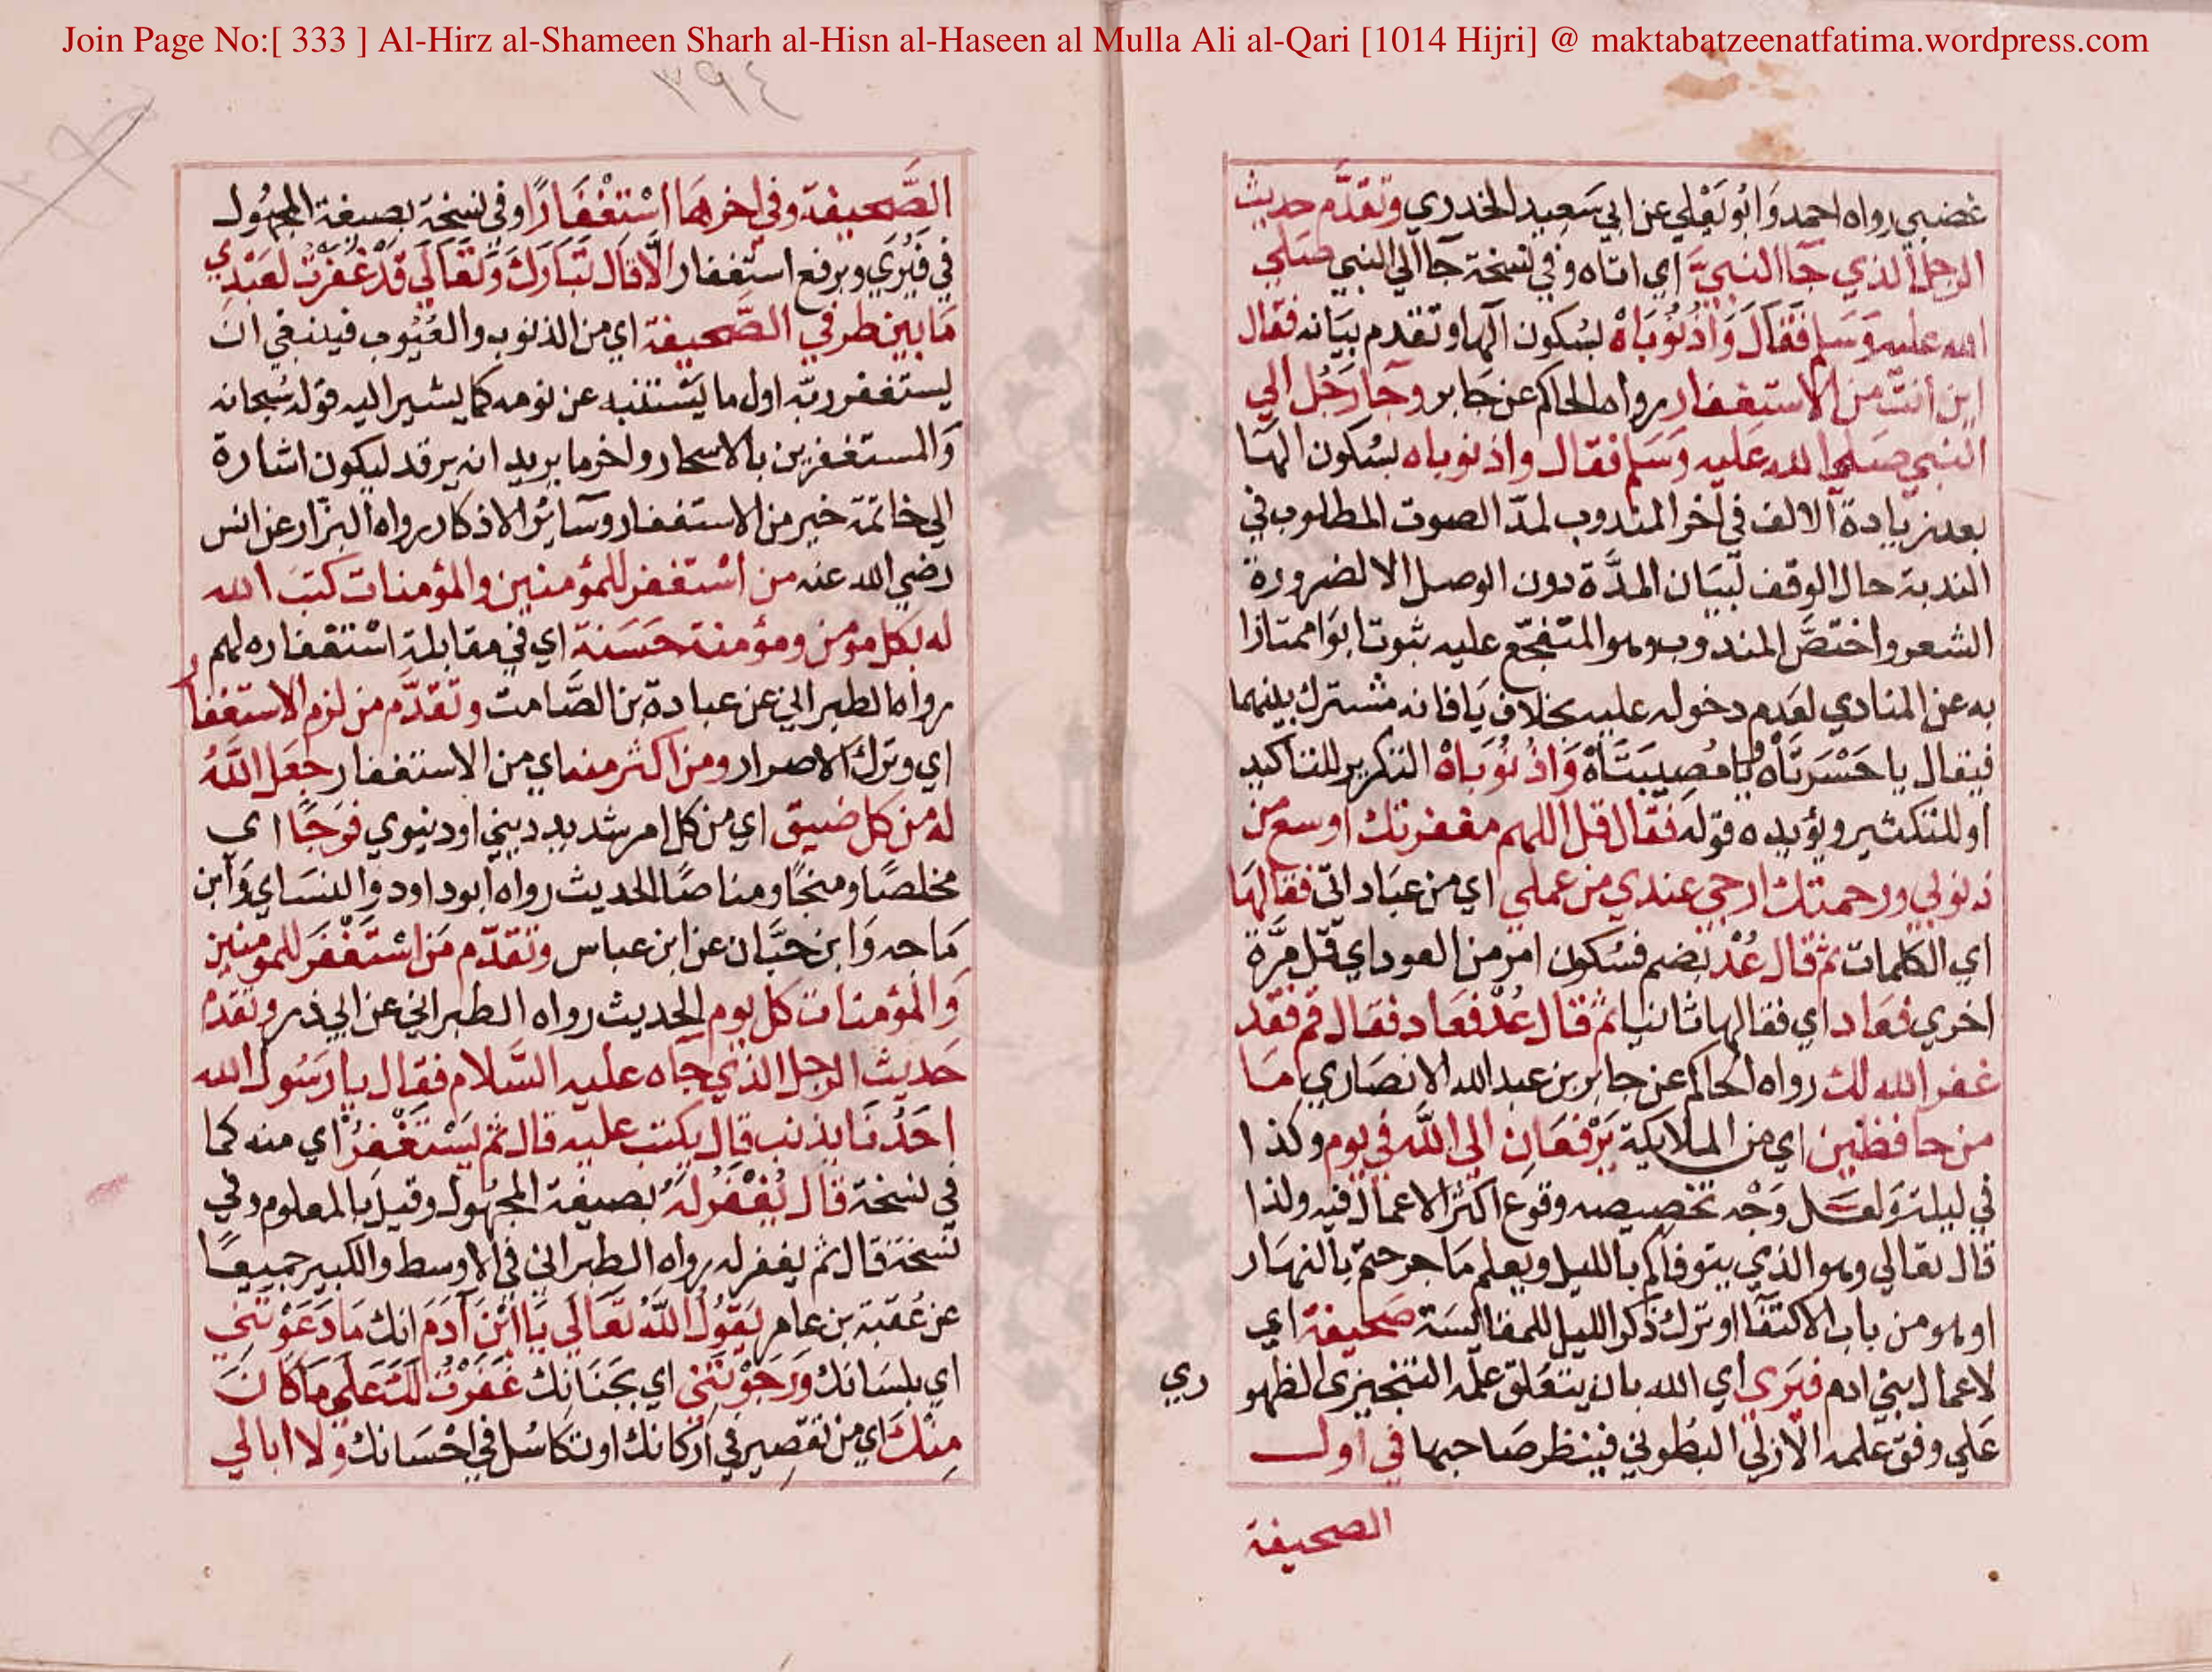 Join Page No:[ 333 ] Al-Hirz al-Shameen Sharh al-Hisn al-Haseen al Mulla Ali al-Qari [1014 Hijri] @ maktabatzeenatfatima.wordpress.com
٣٩٤
غضبي رواه احمد وَابُو يَعْلي عن ابي سَعِيد الخدري وتقدَّم حديث
الرجل الذي جَا النبيَّ اي اتاه وفي نسخة جا الي النبي صَلي
الله عليه وَسَلم فَقَالَ وَاذُنُوبَاهْ بسُكون الها وتقدم بيَانه فقال
اين انت من الاستغفار رواه الحاكم عن جَابر وجَا رَجُل الي
النبي صَلي الله عَليه وَسَلم فقال واذنوباه بسُكون الهَا
بعد زيادة الالف في اخر المندوب لمدّ الصوت المطلوب في
الندبة حال الوقف لبيَان المدَّة دون الوصل الا لضرورة
الشعر واختصَّ المندوب وهو المتفجّع عليه بثوت ابوَا ممتازا
به عن المنادي لعَدم دخوله عليه بخلاف يَا فانه مشترك بينهما
فيقال يا حَسْرَتَاه وَيا مُصِيبَتَاهْ وَاذُنُوبَاهْ التكرير للتاكيد
او للتكثير ويؤيده قوله فقال قل اللهم مغفرتك اوسع من
ذنوبي ورحمتك ارجي عندي من عملي اي من عبَاداتي فقالهَا
اي الكلمات ثم قال عُدْ بضم فسُكون امر من العود اي قل مَرَّة
اخري فعَاد اي فقالها ثانيا ثم قال عُدْ فعَاد فقال قم فقد
غفر الله لك رواه الحاكم عن جابر بن عبد الله الانصَاري مَا
من حافظين اي من الملايكة يَرْفعَان الي اللَّه في يوم وكذا
في ليلة وَلعَل وَجْه تخصيصه وقوع اكثر الاعمال فيه ولذا
قال تعالي وهو الذي يتوفاكم بالليل ويعلم مَا جرحتم بالنهَار
او هو من باب الاكتفَا او ترك ذكر الليل للمقاليسَة صَحيفة اي
لاعمال بني ادم فيَرى اي الله بان يتعَلق علمه التنجيزى الظهو
ري
عَلي وفق عَلمه الازلي البُطوني فينظر صَاحبها في اول
الصحيفة
الصَّحيفة وفي اخرهَا اسْتِغْفَارًا وفي نسخة بصيغة المجهُول
في فيُرَي وبرفع استغفار الَّا قال تَبَارَكَ وَتَعَالَي قدْ غفرْتُ لعَبْدِي
مَا بين طرفي الصَّحيفة اي من الذنوب والعُيُوب فينبغي ان
ليستغفر ربّه اول ما يَستنبه عن نومه كما يشير اليه قوله سُبحانه
وَالمستغفرين بالاسحار واخر ما يريد انه يرقد ليكون اشارة
الي خاتمة خير من الاستغفار وسَائر الاذكار رواه البزّار عن انس
رضي الله عنه من استغفر للمؤمنين والمؤمنات كتبَ الله
له بكل مؤمن ومؤمنة حَسَنة اي في مقابلة اسْتغفاره لهم
رواه الطبراني عن عبادة بن الصَّامت وتقدّم من لزم الاستغفار
اي وترك الاصرار ومن اكثر منه اي من الاستغفار جعَل اللَّهُ
له من كل ضيق اي من كل امر شديد ديني او دنيوي فرَجًا اي
مخلصًا ومنجًا ومناصًا الحديث رواه ابو داود وَالنسَاي وَابن
مَاجه وَابن حبَّان عن ابن عباس وتقدّم مَن اسْتَغْفرَ للمومنين
وَالمؤمنات كل يوم الحديث رواه الطبراني عن ابي ذر وتقدم
حَديث الرجل الذي جَاه عليه السَّلام فقال يا رَسُول الله
احَدُنَا يذنب قال يكتب عليه قال ثم يَسْتَغْفِرُ اي منه كما
في نسخة قال يُغْفَرُ لَهُ بصيغة المجهُول وقيل بالمعلوم وفي
نسخة قال ثم يغفر له رواه الطبراني في الاوسط والكبير جميعًا
عن عُقبَة بن عامر يَقوُلُ اللَّهُ تعَالَي يَا ابْنَ آدَمَ انكَ مَا دَعَوْتَني
اي بلسَانكَ وَرَجَوْتَني اي بجَنَانكَ غَفَرْتُ لكَ عَلَي مَا كَانَ
مِنْكَ اي من تقصِير في اَرْكانك او تكاسُل في احْسَانك وَلا ابالي